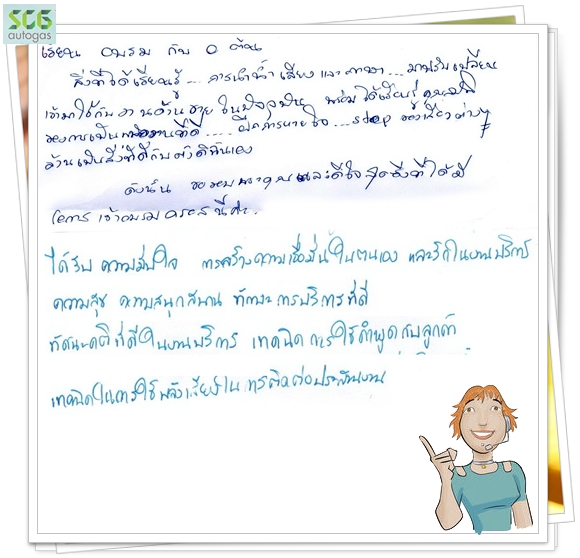 SCG
autogas
เรียน อบรม กับ อ ต้น
สิ่งที่ได้เรียนรู้ ... การนำน้ำเสียง และภาษา ... มาปรับเปลี่ยน
เข้ามาใช้กับงานด้านขาย ในปัจจุบัน พร้อมได้เรียนรู้
ของการเป็นพนักงานที่ดี .... ฝึกการหายใจ ... step ของเสียงต่างๆ
ล้วนเป็นสิ่งที่ดีกับตัวดิฉันเอง
ดังนั้น ขอขอบพระคุณและดีใจสุดซึ้งที่ได้มี
โอกาสเข้าอบรมคอร์สนี้ค่ะ.
ได้รับ ความมั่นใจ การสร้างความเชื่อมั่นในตนเอง และรักในงานบริการ
ความสุข ความสนุกสนาน ทักษะการบริการที่ดี
ทัศนะคติที่ดีในงานบริการ เทคนิค การใช้คำพูดกับลูกค้า
เทคนิคในการใช้พลังเสียงใน การติดต่อประสานงาน